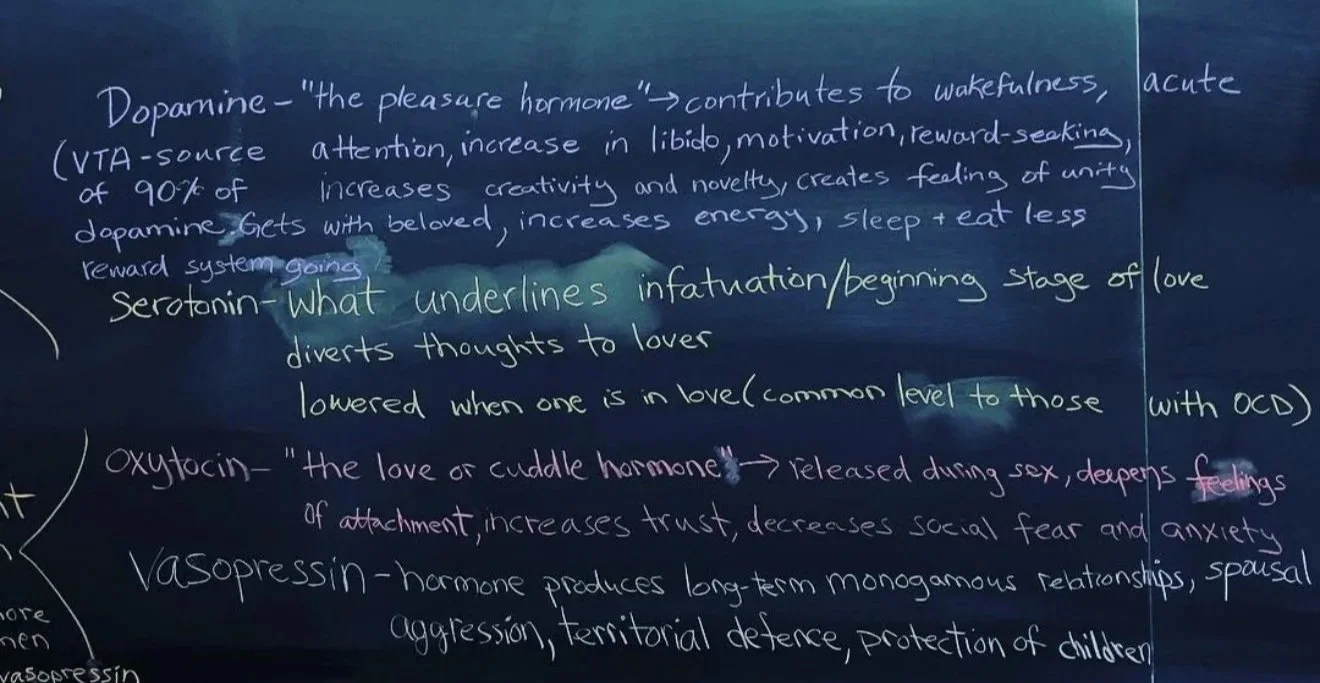 Dopamine - "the pleasure hormone" → contributes to wakefulness, acute
(VTA - source attention, increase in libido, motivation, reward-seeking,
of 90% of increases creativity and novelty, creates feeling of unity
dopamine. Gets with beloved, increases energy, sleep + eat less
reward system going)
Serotonin - What underlines infatuation/beginning stage of love
diverts thoughts to lover
lowered when one is in love (common level to those with OCD)
Oxytocin - "the love or cuddle hormone" → released during sex, deepens feelings
of attachment, increases trust, decreases social fear and anxiety
Vasopressin - hormone produces long-term monogamous relationships, spousal
aggression, territorial defence, protection of children
vasopressin